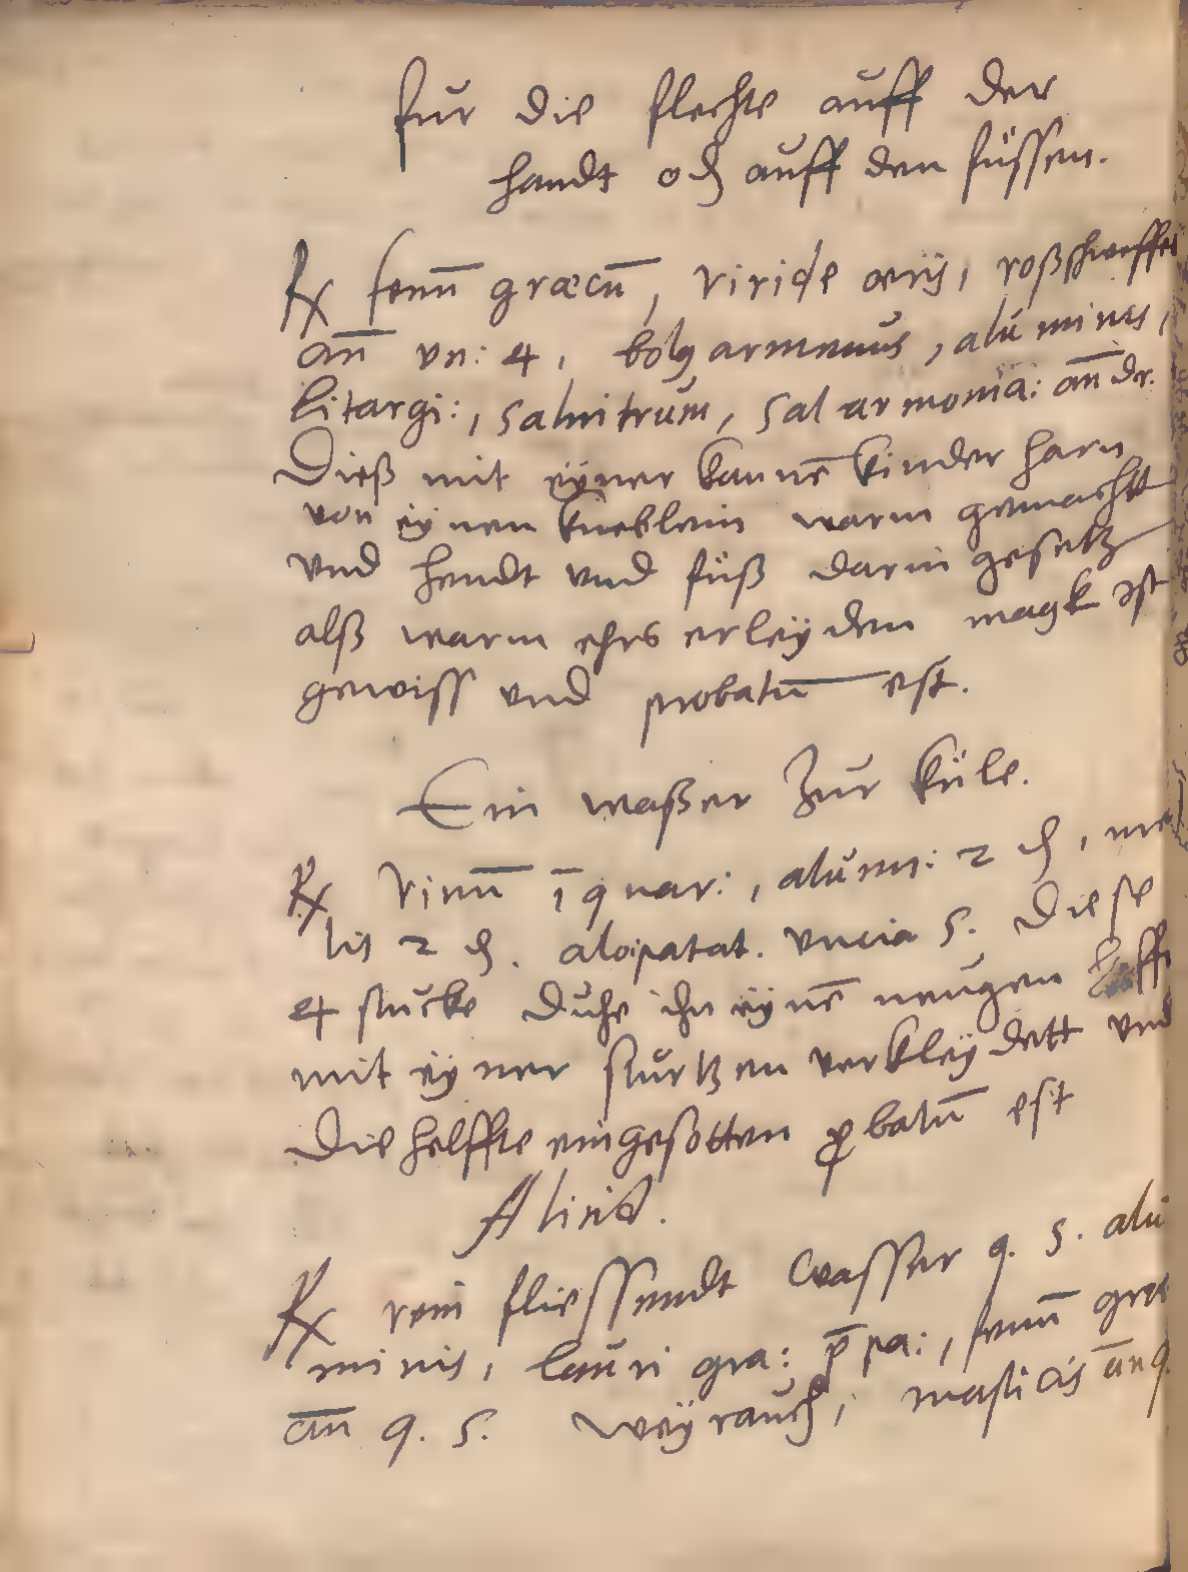 fur die flechte auff der
handt od auff den füssen.
Rx fenū græcū, viride æris, roßschweffel
an̄ vn: 4, bolus armenus, aluminis,
Litargi:, salnitrum, Sal armonia: an̄ dr.
Dieß mit eÿner kannē kinder harn
von eÿnen kneblein warm gemacht
vnd hendt vnd füß darin gesetz
alß warm ehrs erleÿden magk ist
gewiss vnd probatū est.
Ein waßer zur küle.
Rx vinū ī quar:, alumi: 2 , me
lis 2 . vncia s. Diese
4 stucke duhe ihn eÿnē neugen
mit eÿner sturtzen verkleÿdett vnd
Die helffte eingesotten ꝓbatū est
Aliud.
Rx rein fliessendt Wasser q. s. alu
minis, lauri gra: p̄pa:, fenū græ
an̄ q. s. weÿrauch, masticis an̄ q.